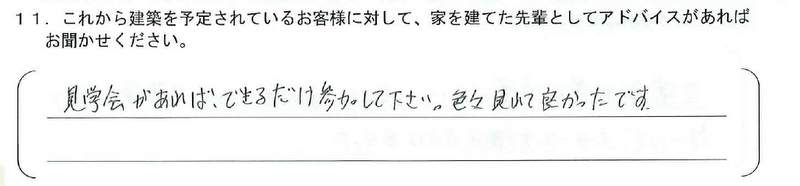 11．これから建築を予定されているお客様に対して、家を建てた先輩としてアドバイスがあれば
お聞かせください。
見学会があれば、できるだけ参加して下さい。色々見れて良かったです